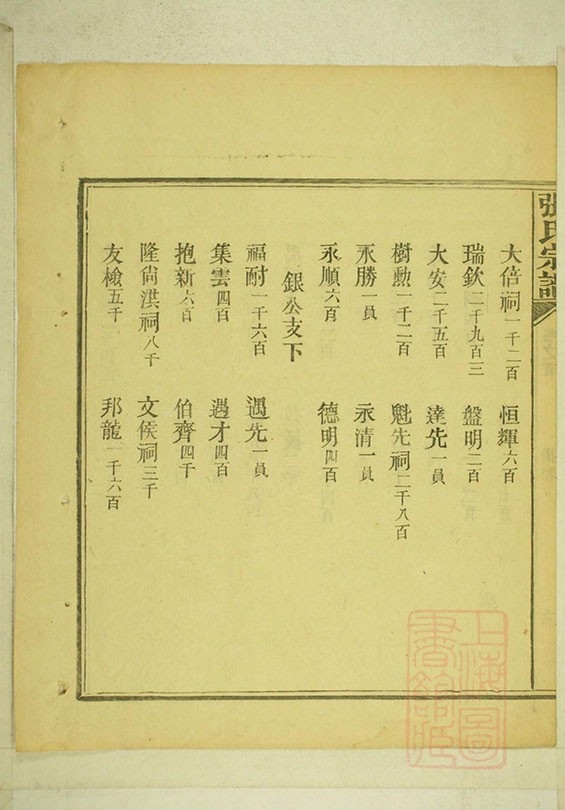 張氏宗譜
大倍祠一千二百 恒輝六百
瑞欽二千九百三 盤明二百
大安二千五百 達先一員
樹勲一千二百 魁先祠二千八百
永勝一員 永清一員
永順六百 德明四百
銀公支下
福耐一千六百 遇先一員
集雲四百 遇才四百
抱新六百 伯齊四千
隆尙淇祠八千 文侯祠三千
友檢五千 邦龍一千六百
上海圖書館藏